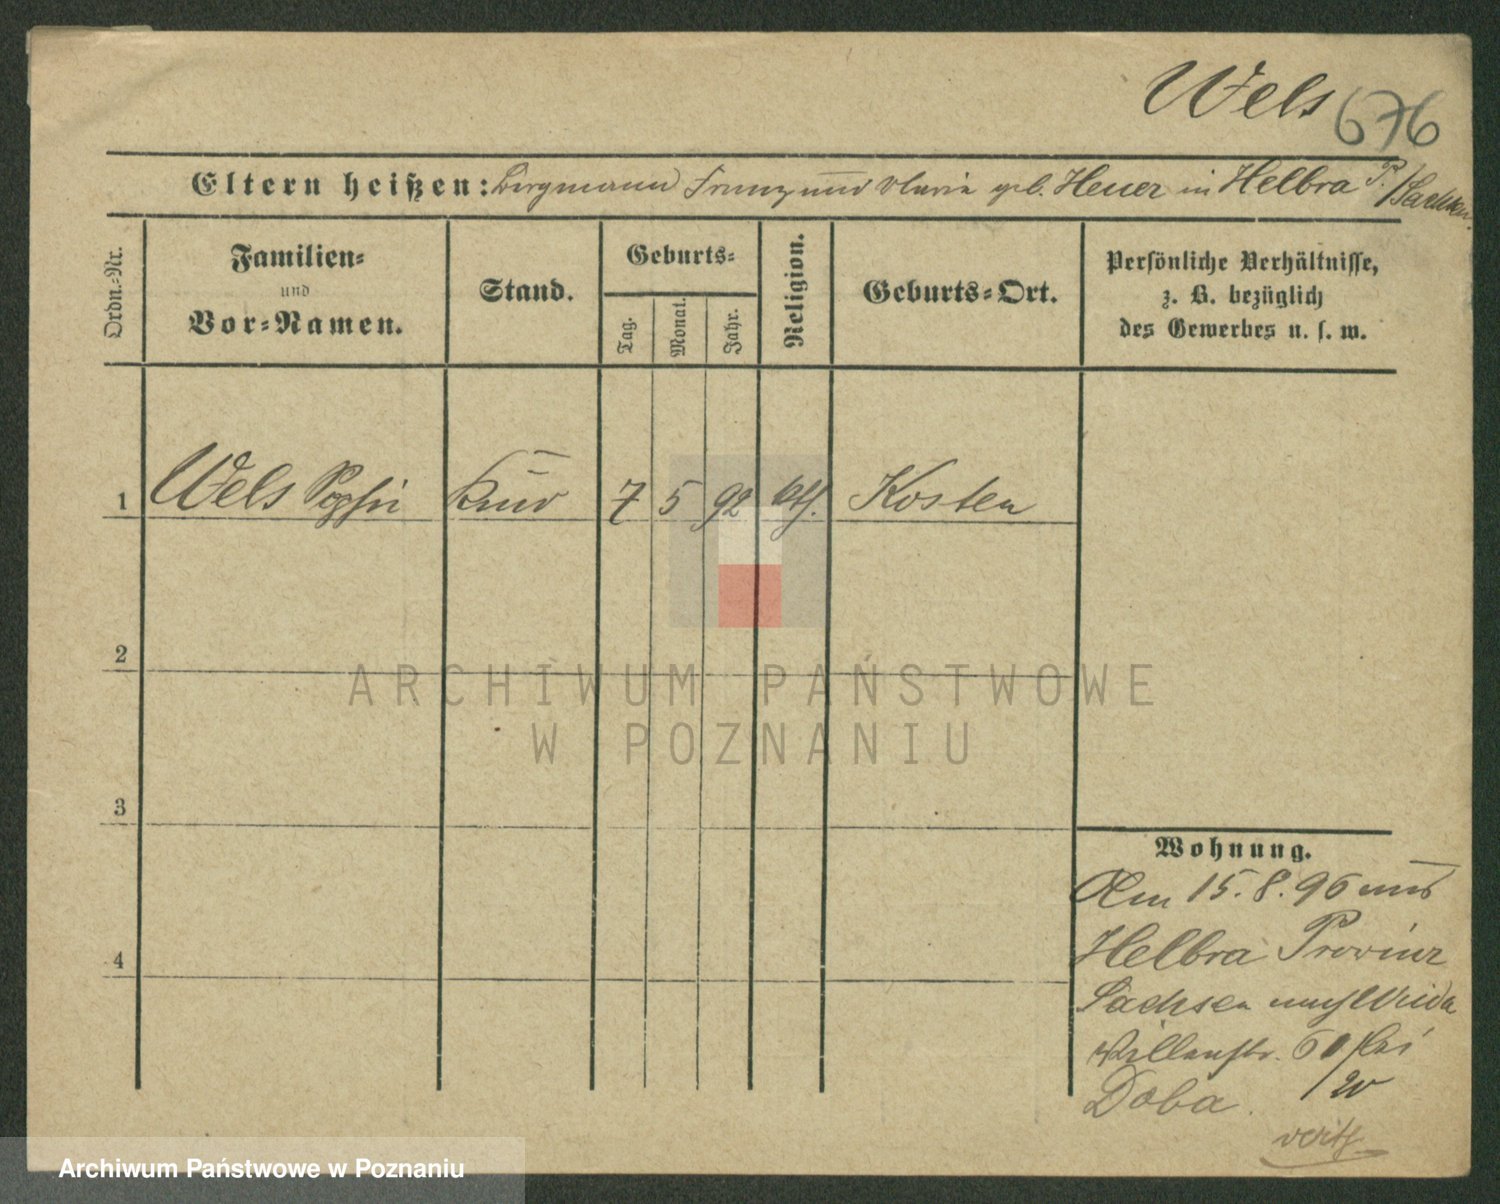 Wels 676
Eltern heißen: Bergmann Franz und Maria geb. Heuer in Helbra P./Sachsen
Ordn.-Nr.
Familien-
und
Vor-Namen.
Stand.
Geburts-
Tag.
Monat.
Jahr.
Religion.
Geburts-Ort.
Persönliche Verhältnisse,
z. B. bezüglich
des Gewerbes u. s. w.
1 Wels Sophie Kind 7 5 92 kth. Kosten
2
3
4
Wohnung.
Am 15.8.96 aus
Helbra Provinz
Sachsen nach Wilda
60 bei
Doba.
ARCHIWUM PAŃSTWOWE
W POZNANIU
Archiwum Państwowe w Poznaniu